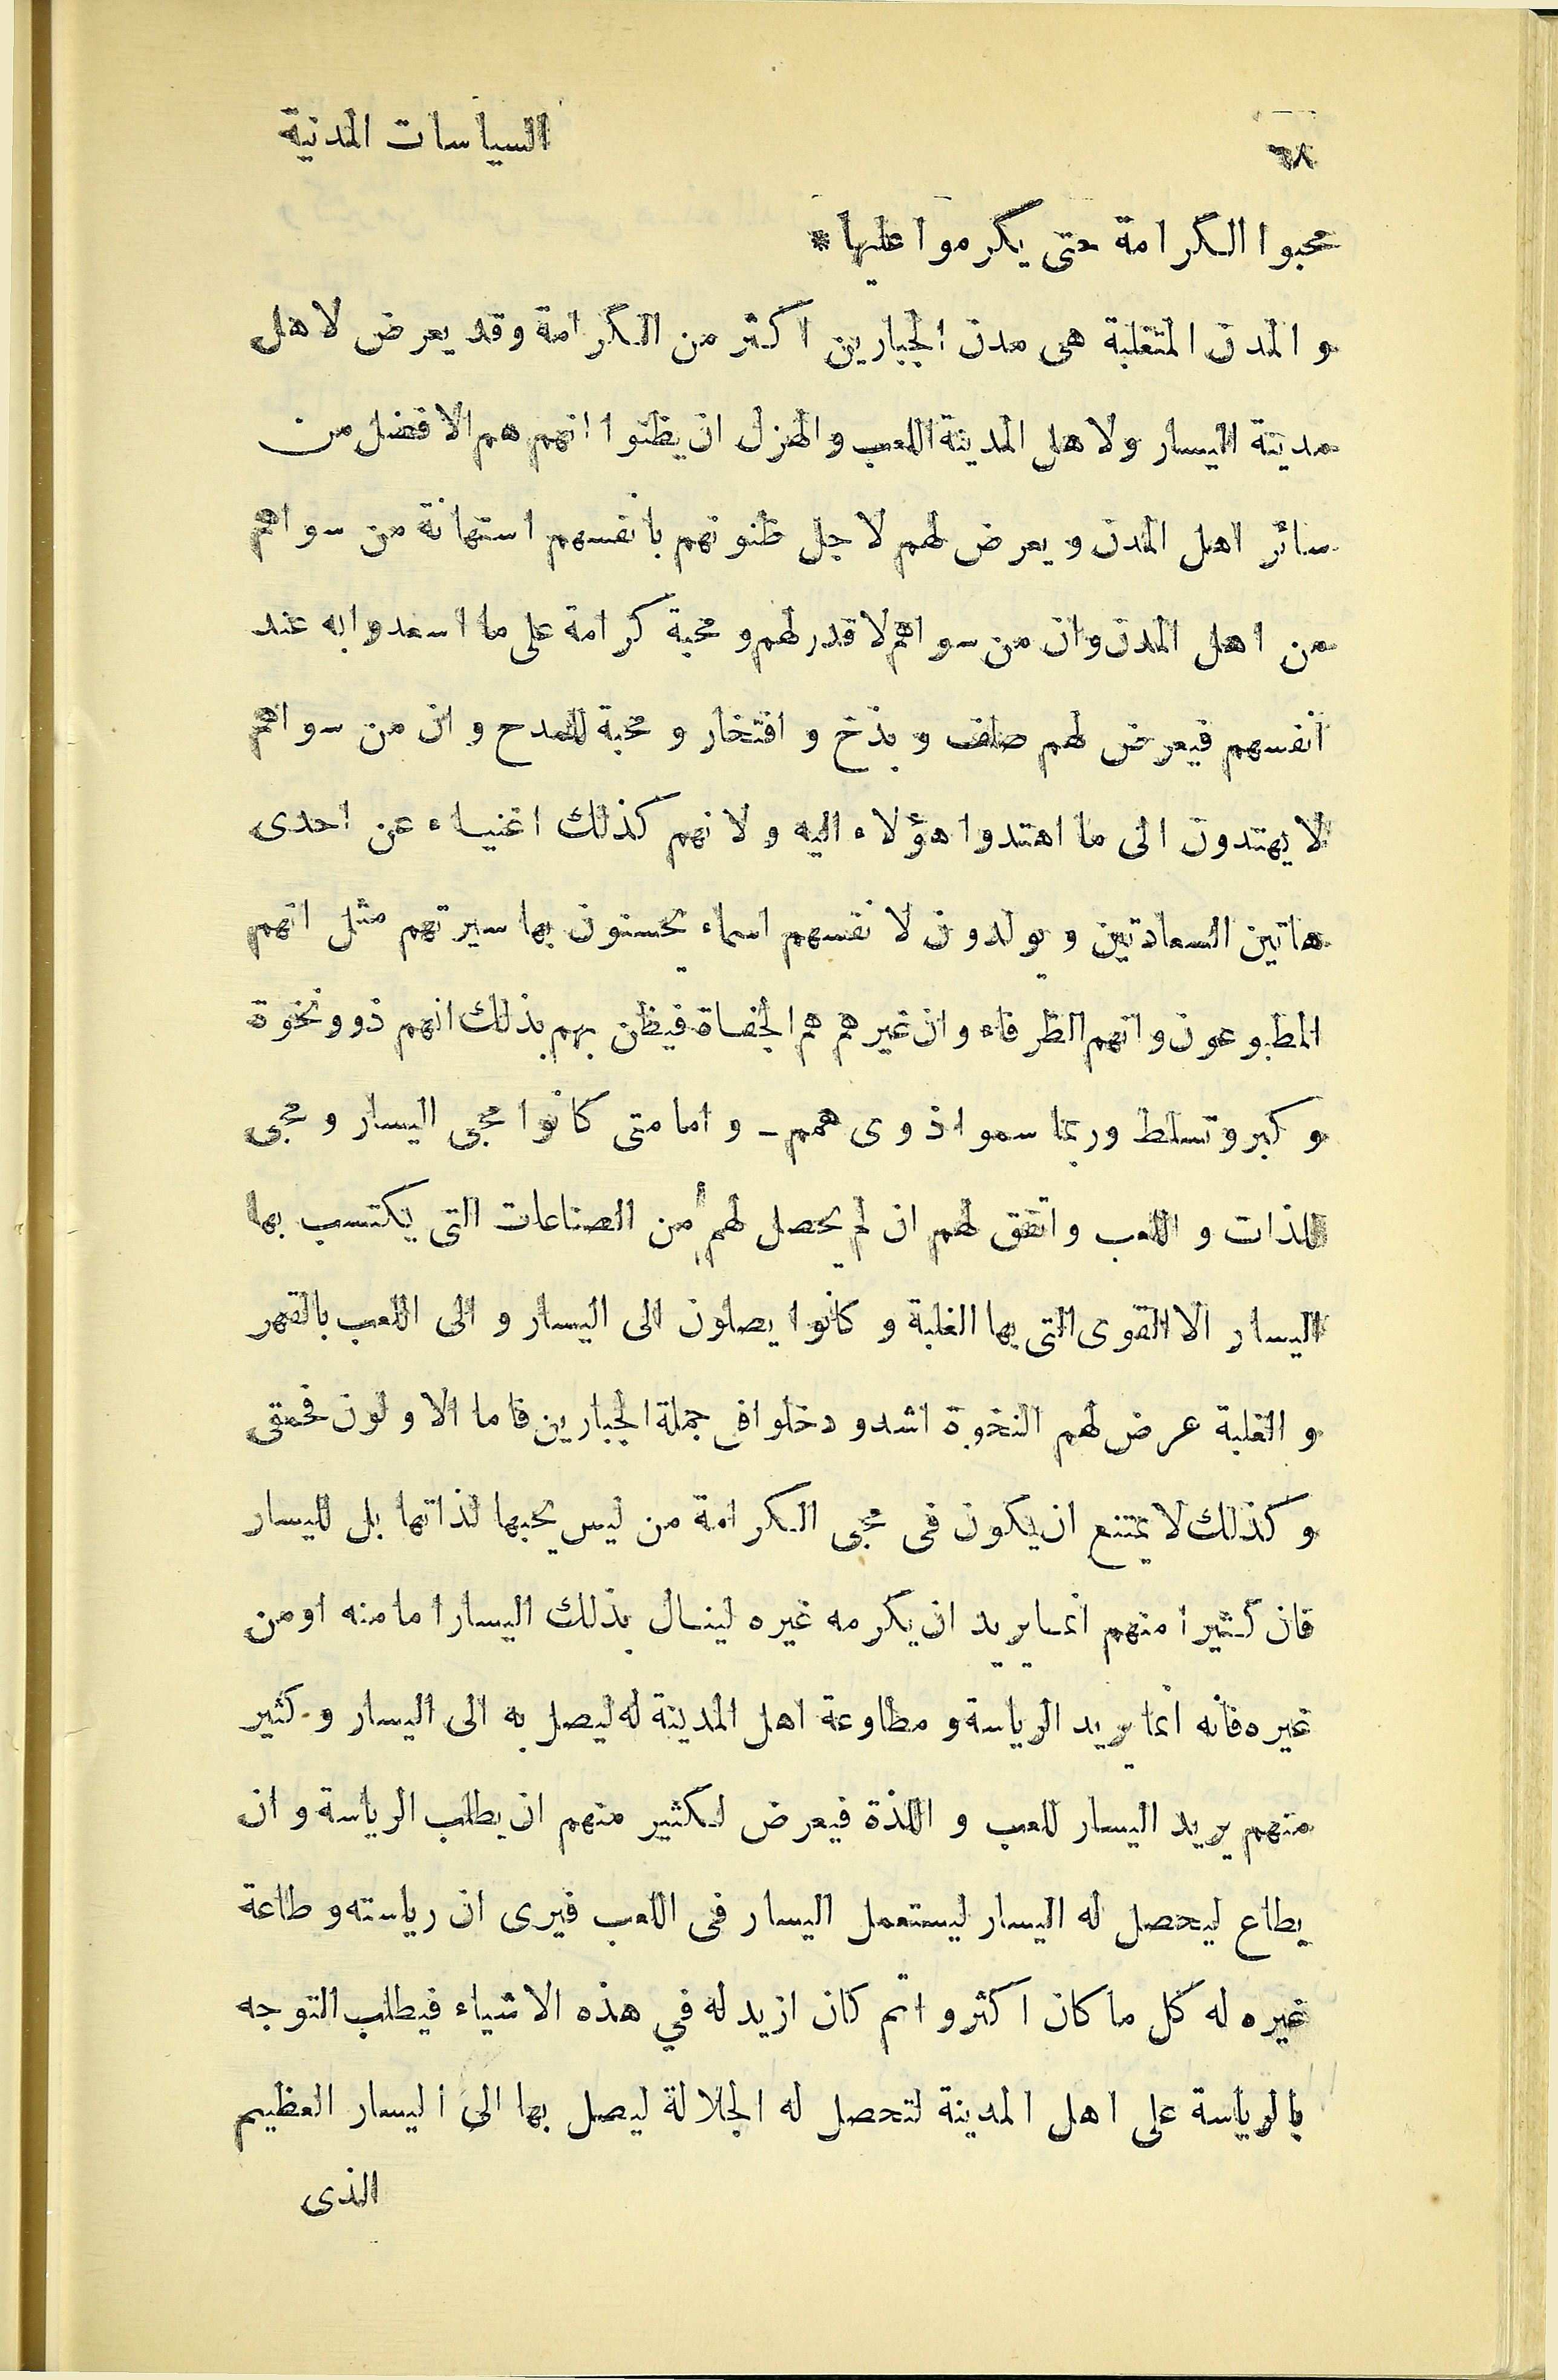 ٦٨
السياسات المدنية
محبوا الكرامة حتى يكرموا عليها *
و المدن المتغلبة هى مدن الجبارين اكثر من الكرامة وقد يعرض لاهل
مدينة اليسار ولاهل المدينة اللعب والهزل ان يظنوا انهم هم الافضل من
سائر اهل المدن ويعرض لهم لاجل ظنونهم بأنفسهم استهانة من سواهم
من اهل المدن وان من سواهم لا قدر لهم و محبة كرامة على ما اسعدوا به عند
أنفسهم فيعرض لهم صلف و بذخ و افتخار و محبة للمدح و ان من سواهم
لا يهتدون الى ما اهتدوا هؤلاء اليه و لانهم كذلك اغنياء عن احدى
هاتين السعادتين و يولدون لانفسهم اسماء يحسنون بها سيرتهم مثل انهم
المطبوعون وانهم الظرفاء وان غيرهم هم الجفاة فيظن بهم بذلك انهم ذوو نخوة
و كبر و تسلط وربما سموا ذوى همم ـ و اما متى كانوا محبى اليسار و محبى
للذات و اللعب واتفق لهم ان لم يحصل لهم من الصناعات التى يكتسب بها
اليسار الا القوى التى بها الغلبة و كانوا يصلون الى اليسار و الى اللعب بالقهر
و الغلبة عرض لهم النخوة اشد و دخلوا فى جملة الجبارين فاما الاولون فحمقى
و كذلك لا يمتنع ان يكون فى محبى الكرامة من ليس يحبها لذاتها بل لليسار
فان كثيرا منهم انما يريد ان يكرمه غيره لينال بذلك اليسار اما منه او من
غيره فانه انما يريد الرياسة و مطاوعة اهل المدينة له ليصل به الى اليسار و كثير
منهم يريد اليسار للعب و اللذة فيعرض لكثير منهم ان يطلب الرياسة و ان
يطاع ليحصل له اليسار ليستعمل اليسار فى اللعب فيرى ان رياسته و طاعة
غيره له كل ما كان اكثر و اتم كان ازيد له في هذه الاشياء فيطلب التوجه
بالرياسة على اهل المدينة لتحصل له الجلالة ليصل بها الى اليسار العظيم
الذى